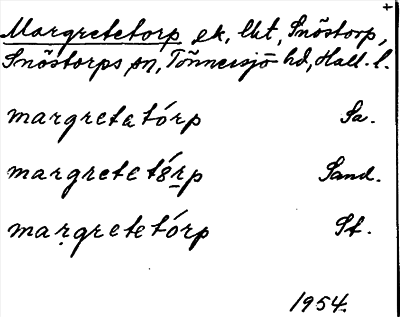 +
Margretetorp ek, lkt, Snöstorp,
Snöstorps sn, Tönnersjö hd, Hall. l.
margretatórp Sa.
margretetór̠p Sand.
maṛgretetórp St.
1954.